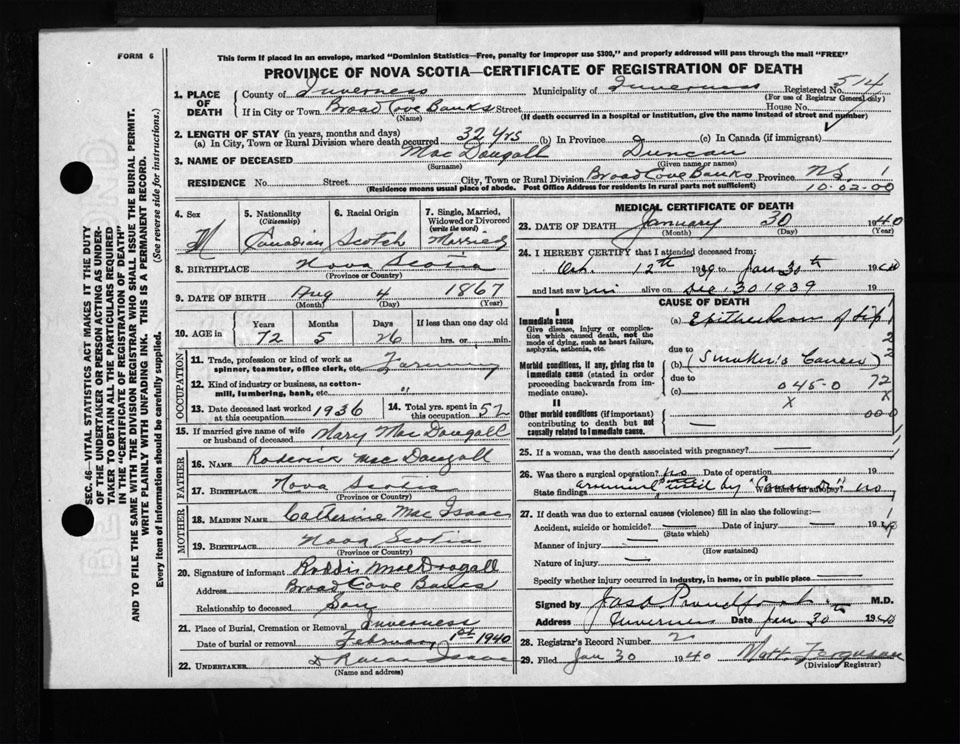 FORM 6
This form if placed in an envelope, marked "Dominion Statistics—Free, penalty for improper use $300," and properly addressed will pass through the mail "FREE"
PROVINCE OF NOVA SCOTIA—CERTIFICATE OF REGISTRATION OF DEATH
1. PLACE OF DEATH County of Inverness Municipality of Inverness Registered No. 514
(For use of Registrar General only)
If in City or Town Broad Cove Banks Street House No.
(Name) (If death occurred in a hospital or institution, give the name instead of street and number)
2. LENGTH OF STAY (in years, months and days)
(a) In City, Town or Rural Division where death occurred 32 yrs (b) In Province (c) In Canada (if immigrant)
3. NAME OF DECEASED MacDougall Duncan
(Surname) (Given name or names)
RESIDENCE No. Street City, Town or Rural Division Broad Cove Banks Province N.S. 1
(Residence means usual place of abode. Post Office Address for residents in rural parts not sufficient) 10-02-00
4. Sex M
5. Nationality (Citizenship) Canadian
6. Racial Origin Scotch
7. Single, Married, Widowed or Divorced (write the word) Married
8. BIRTHPLACE Nova Scotia
(Province or Country)
9. DATE OF BIRTH Aug 4 1867
(Month) (Day) (Year)
10. AGE in Years Months Days If less than one day old
72 5 26 hrs. or min.
OCCUPATION
11. Trade, profession or kind of work as spinner, teamster, office clerk, etc. Farming
12. Kind of industry or business, as cotton-mill, lumbering, bank, etc. "
13. Date deceased last worked at this occupation 1936 14. Total yrs. spent in this occupation 52
15. If married give name of wife or husband of deceased Mary MacDougall
FATHER
16. NAME Roderick MacDougall
17. BIRTHPLACE Nova Scotia
MOTHER
18. MAIDEN NAME Catherine MacIsaac
19. BIRTHPLACE Nova Scotia
(Province or Country)
20. Signature of informant MacDougall
Address Broad Cove Banks
Relationship to deceased Son
21. Place of Burial, Cremation or Removal Inverness
Date of burial or removal February 1st 1940
22. UNDERTAKER Isaac
(Name and address)
MEDICAL CERTIFICATE OF DEATH
23. DATE OF DEATH January 30 1940
(Month) (Day) (Year)
24. I HEREBY CERTIFY that I attended deceased from:
Oct. 12th 1939 to Jan 30th 1940
and last saw him alive on Dec. 30 1939 19
CAUSE OF DEATH
I
Immediate cause
Give disease, injury or complication which caused death, not the mode of dying, such as heart failure, asphyxia, asthenia, etc.
(a) Epithelioma of Lip
due to
(b) (Smoker's Cancer)
Morbid conditions, if any, giving rise to immediate cause (stated in order proceeding backwards from immediate cause).
due to
(c) 045-0 72
X X
II
Other morbid conditions (if important) contributing to death but not causally related to immediate cause.
000
25. If a woman, was the death associated with pregnancy?
26. Was there a surgical operation? no Date of operation 19
State findings Was there an autopsy? no
27. If death was due to external causes (violence) fill in also the following:—
Accident, suicide or homicide? Date of injury 19
(State which)
Manner of injury
(How sustained)
Nature of injury
Specify whether injury occurred in industry, in home, or in public place
Signed by Jas. Proudfoot M.D.
Address Inverness Date Jan 30th 1940
28. Registrar's Record Number 2
29. Filed Jan 30 1940 Matt Ferguson
(Division Registrar)
SEC. 46—VITAL STATISTICS ACT MAKES IT THE DUTY OF THE UNDERTAKER OR PERSON ACTING AS UNDERTAKER TO OBTAIN ALL THE PARTICULARS REQUIRED IN THE "CERTIFICATE OF REGISTRATION OF DEATH" AND TO FILE THE SAME WITH THE DIVISION REGISTRAR WHO SHALL ISSUE THE BURIAL PERMIT.
WRITE PLAINLY WITH UNFADING INK. THIS IS A PERMANENT RECORD.
Every item of information should be carefully supplied. (See reverse side for instructions.)